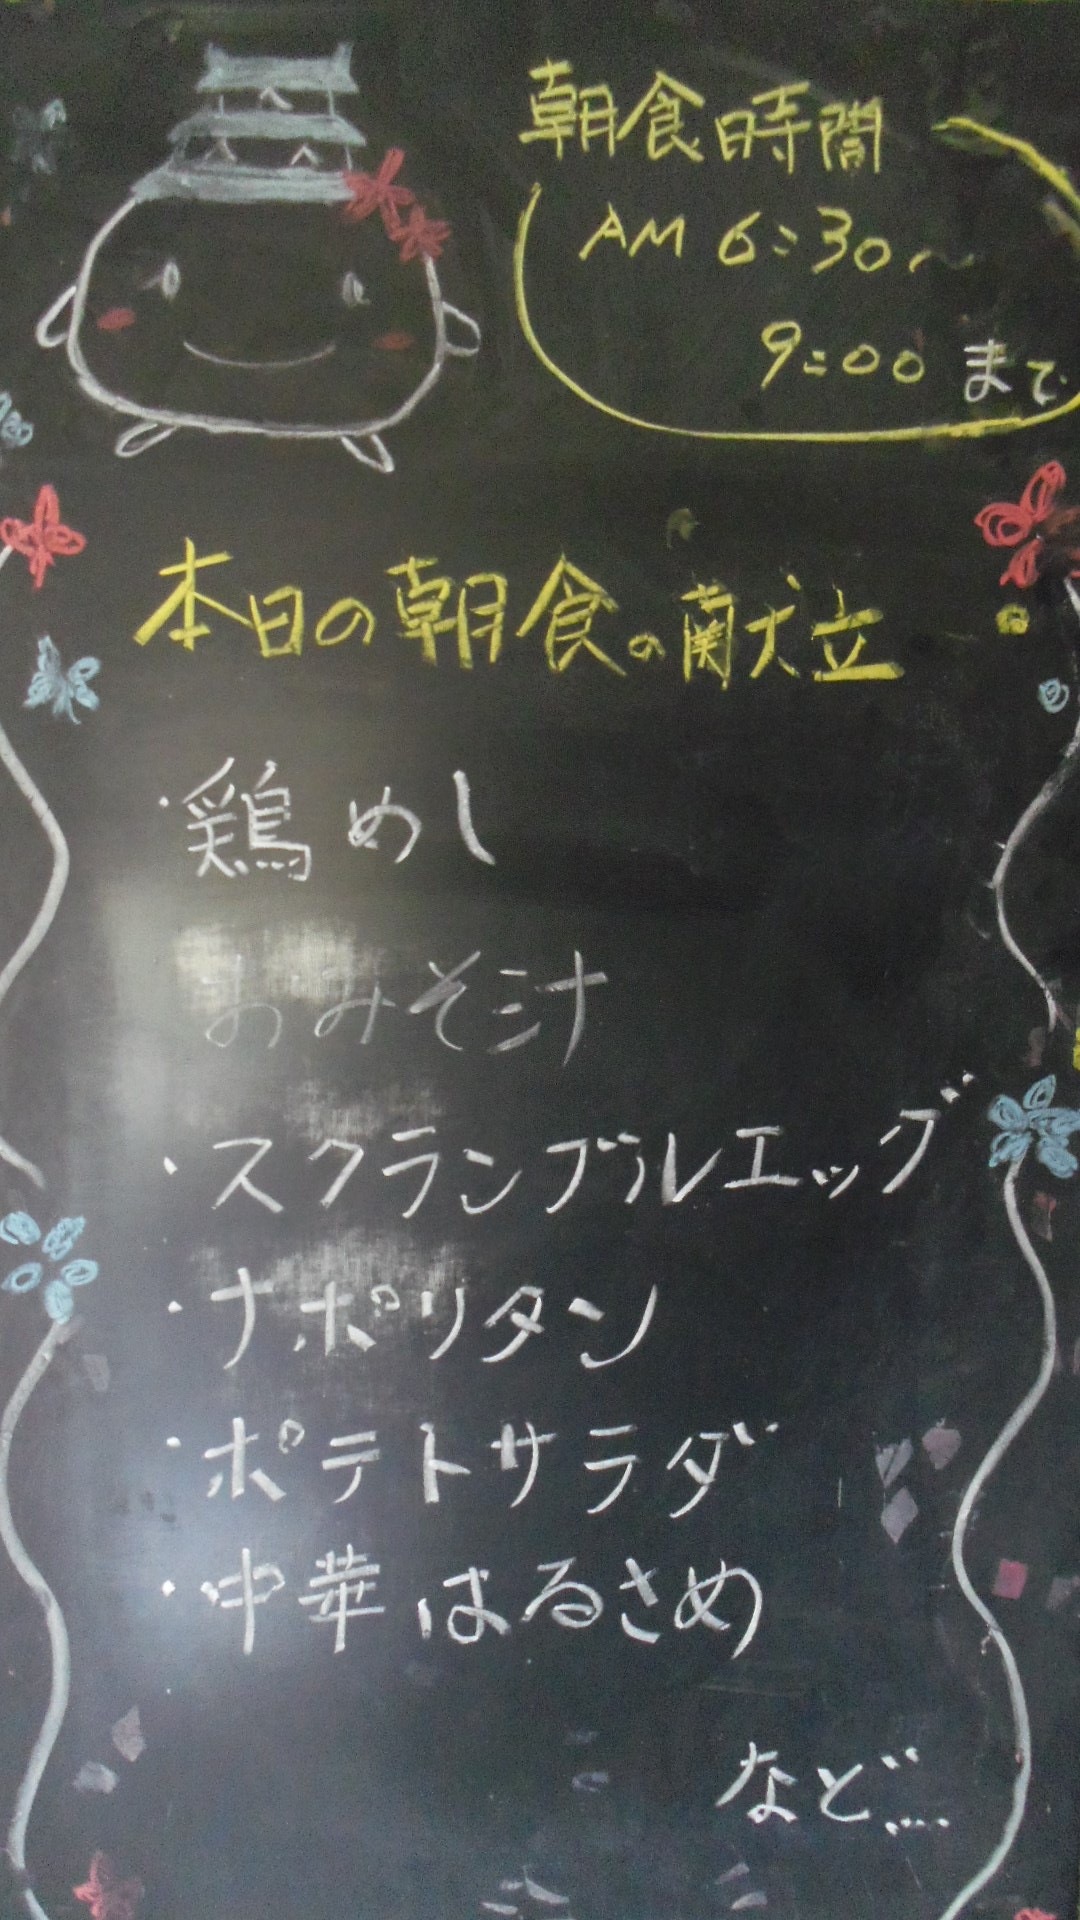 朝食時間
AM 6:30～
9:00 まで
本日の朝食の献立
・鶏めし
おみそ汁
・スクランブルエッグ
・ナポリタン
・ポテトサラダ
・中華はるさめ
など....